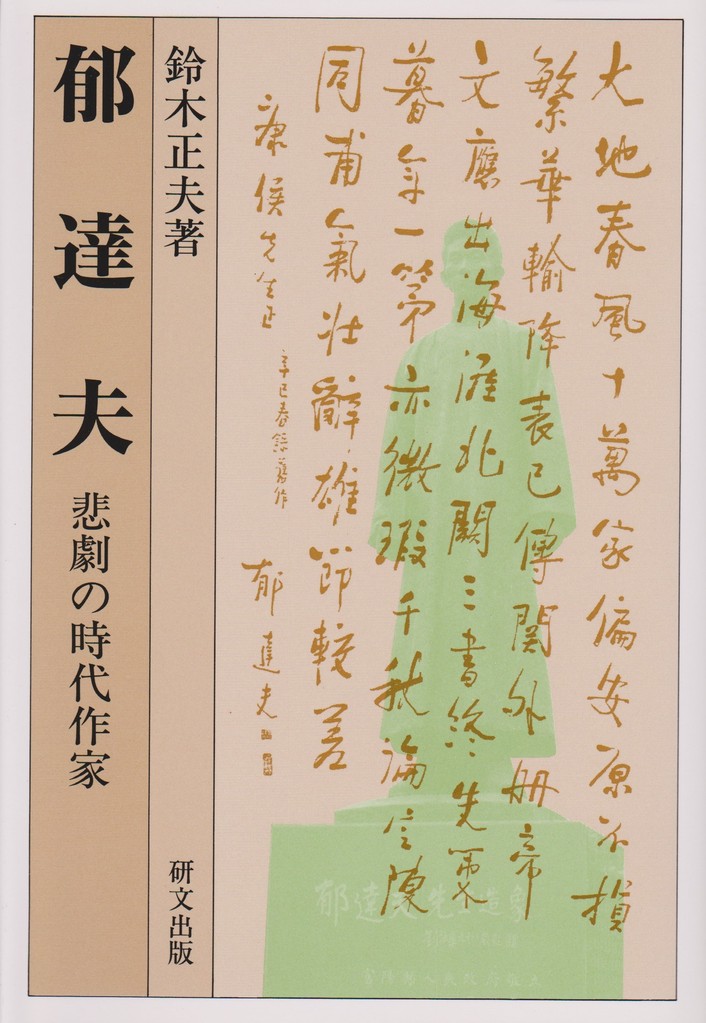 郁達夫
悲劇の時代作家
鈴木正夫著
研文出版
大地春風十萬家偏安原不損
繁華輸降表已傳關外冊帝
文應出海涯北闕三書終失策
暮年一第亦微瑕千秋論定陳
同甫氣壯辭雄節較差
康侯先生正
辛巳春錄舊作
郁達夫
郁達夫先生造象